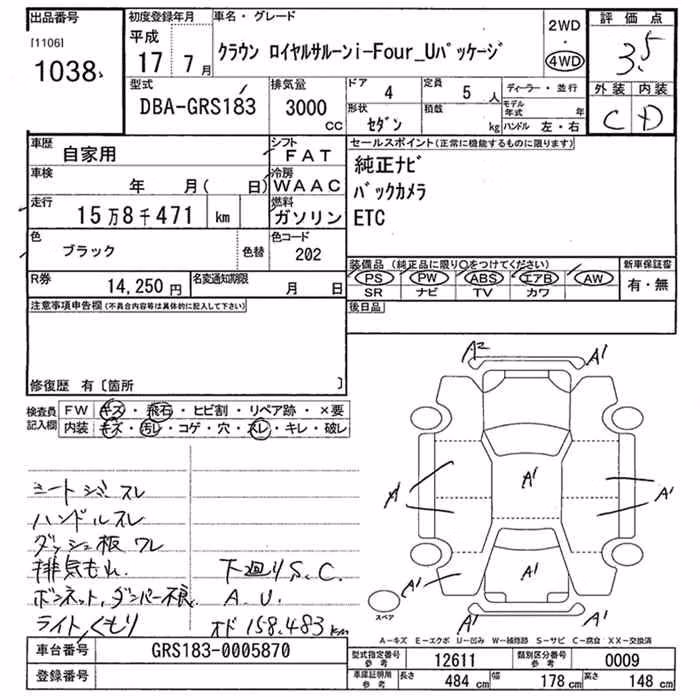 出品番号
[1106]
1038
初度登録年月
平成
17年 7月
車名・グレード
クラウン ロイヤルサルーンi-Four_Uパッケージ
2WD
・
4WD
評価点
3.5
外装 内装
C D
型式
DBA-GRS183
排気量
3000
CC
ドア
4
定員
5 人
形状
セダン
積載
kg
ディーラー・並行
モデル
年式 年
ハンドル 左・右
車歴
自家用
シフト
FAT
車検
年 月( 日)
冷房
WAAC
走行
15万8千471 km
燃料
ガソリン
色
ブラック
色替
色コード
202
R券
14,250円
名変通知期限
月 日
セールスポイント(正常に機能するものに限ります)
純正ナビ
バックカメラ
ETC
装備品(純正品に限り○をつけてください)
PS PW ABS エアB AW
SR ナビ TV カワ
新車保証書
有・無
後日品
注意事項申告欄(不具合内容等は具体的に記入して下さい)
修復歴 有〔箇所 〕
検査員
記入欄
FW キズ・飛石・ヒビ割・リペア跡・×要
内装 キズ・汚レ・コゲ・穴・スレ・キレ・破レ
シートシミ スレ
ハンドルスレ
ダッシュ板 ワレ
排気もれ
ボンネット,ダンパー不良
ライト,くもり
下廻りS.C.
A.U.
オド 158,483km
A2
A1
A1
A1
A1
A1
A1
A1
A1
スペア
A-キズ E-エクボ U-凹み W-補修跡 S-サビ C-腐食 XX-交換済
車台番号
GRS183-0005870
登録番号
型式指定番号
参考
12611
類別区分番号
参考
0009
車庫証明用
参考
長さ
484 cm
幅
178 cm
高さ
148 cm